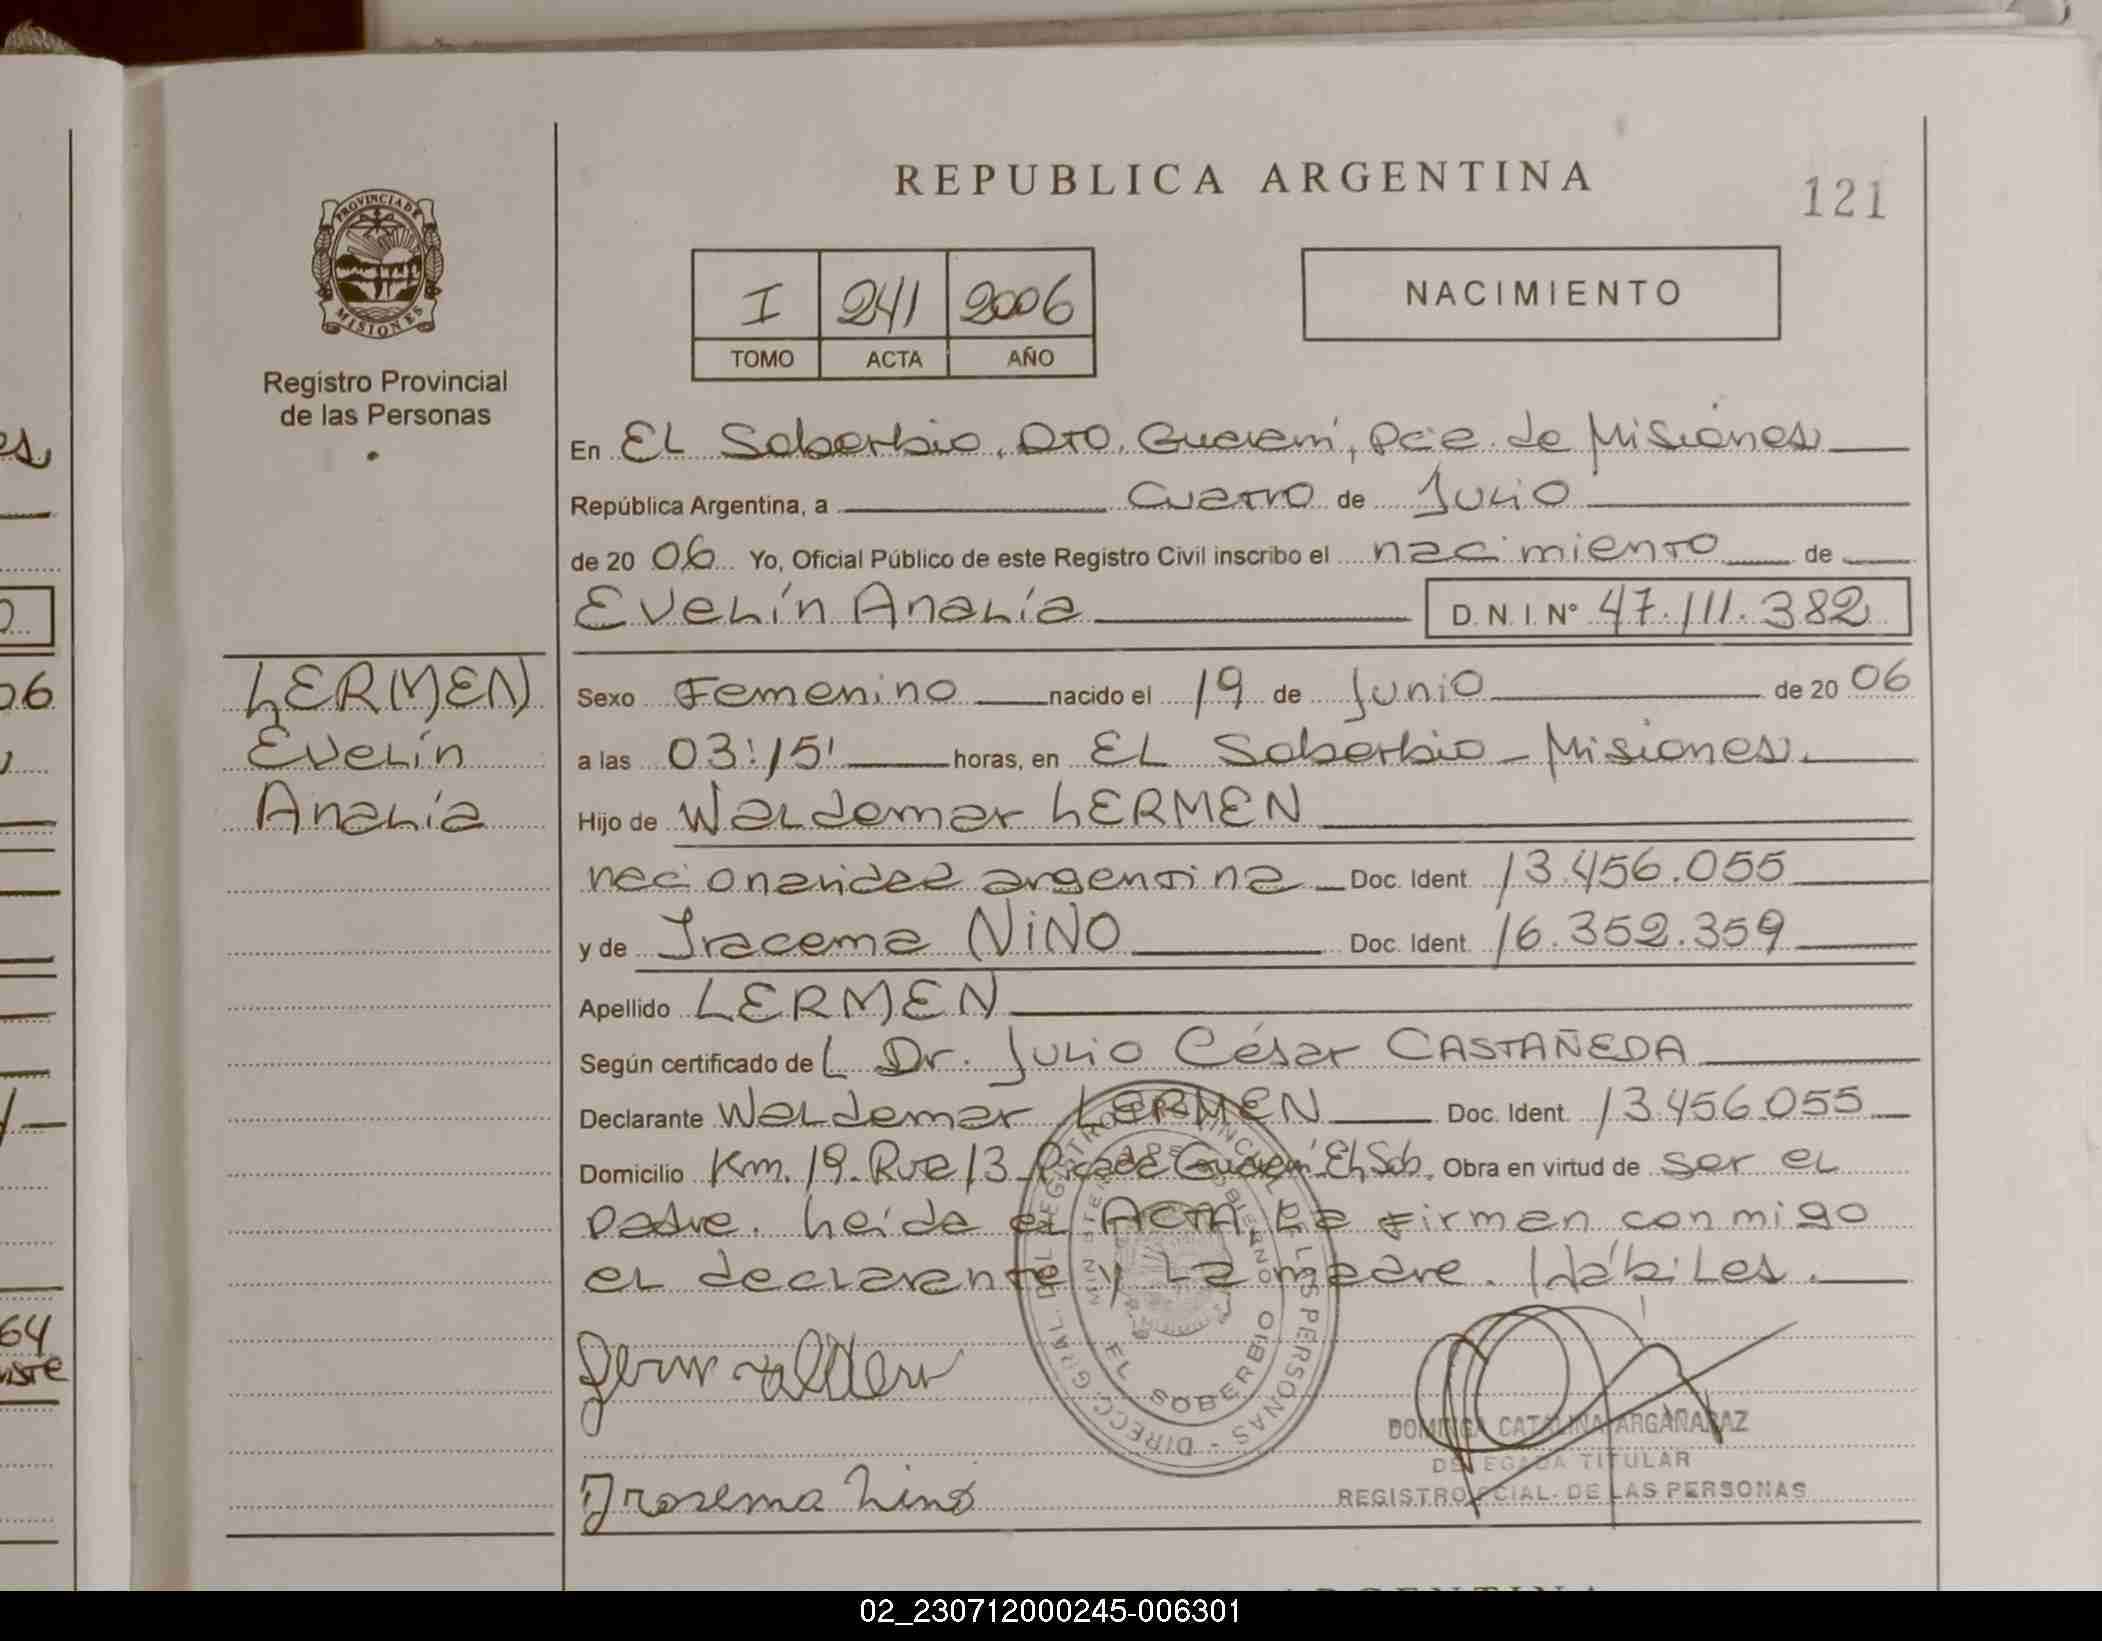 REPUBLICA ARGENTINA
121
PROVINCIA DE
MISIONES
Registro Provincial
de las Personas
I 241 2006
TOMO ACTA AÑO
NACIMIENTO
En El Soberbio, Dto. Guaraní, Pcia. de Misiones
República Argentina, a cuatro de Julio
de 2006 Yo, Oficial Público de este Registro Civil inscribo el nacimiento de
Evelín Analía D.N.I. Nº 47.111.382
LERMEN
Evelín
Analía
Sexo Femenino nacido el 19 de Junio de 2006
a las 03:15' horas, en El Soberbio - Misiones.
Hijo de Waldemar LERMEN
nacionalidad argentina Doc. Ident. 13.456.055
y de Iracema NiNO Doc. Ident. 16.352.359
Apellido LERMEN
Según certificado de L Dr. Julio César CASTAÑEDA
Declarante Waldemar LERMEN Doc. Ident. 13.456.055
Domicilio Km. 19. Ruta 13 Picada Guaraní El Sob. Obra en virtud de ser el
Padre. Leída el ACTA La firman conmigo
el declarante y La madre. Hábiles.
DIRECC. GRAL. DEL REGISTRO PROVINCIAL DE LAS PERSONAS
EL SOBERBIO
DOMINGA CATALINA ARGAÑARAZ
DELEGADA TITULAR
REGISTRO PCIAL. DE LAS PERSONAS
Irasema Nino
ARGENTINA
02_230712000245-006301